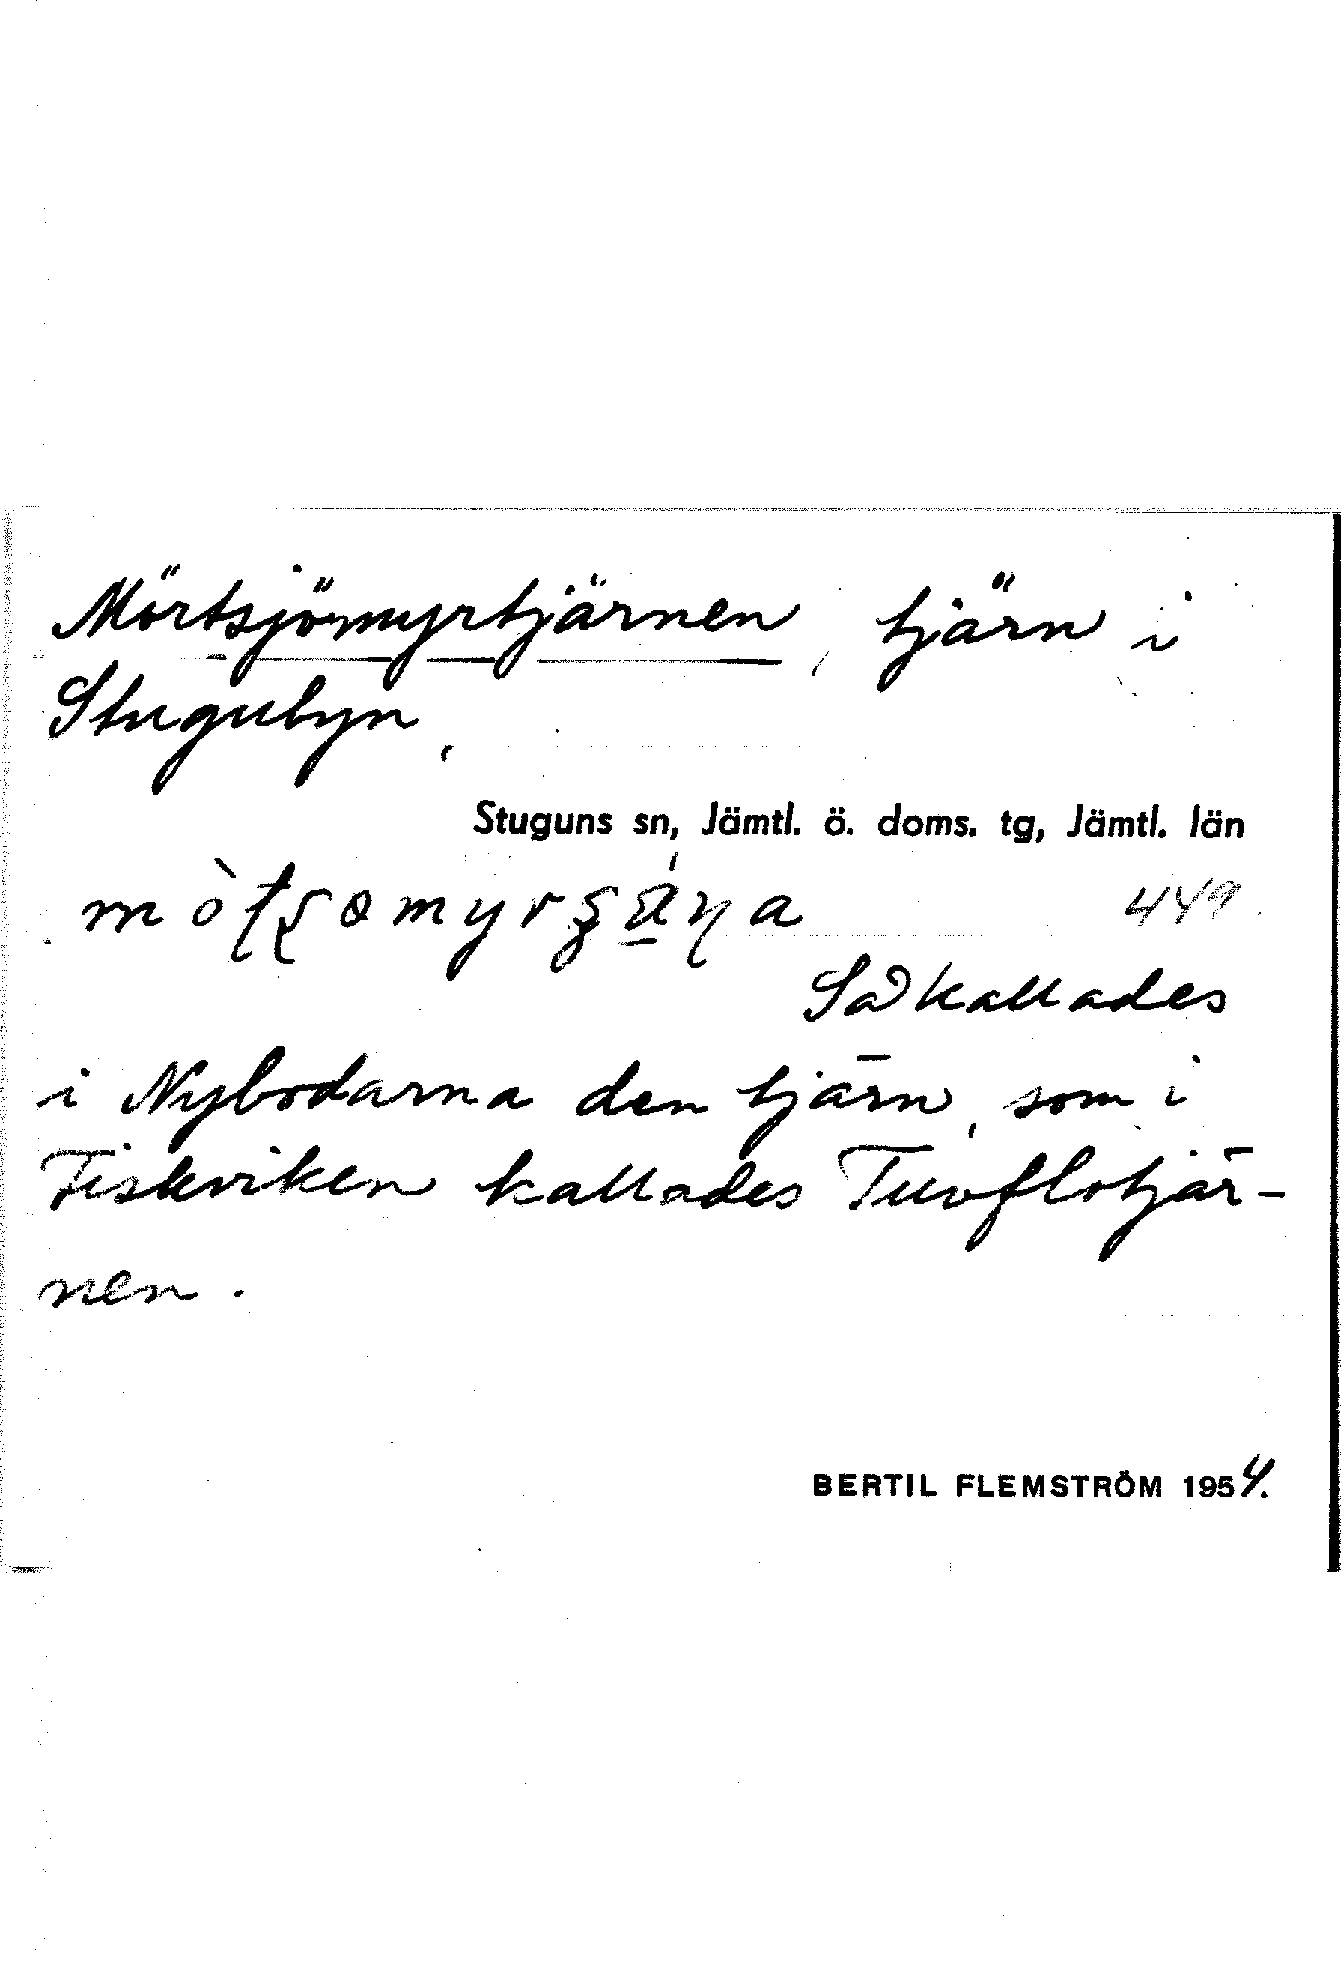 Mörtsjömyrtjärnen, tjärn i
Stugubyn,
Stuguns sn, Jämtl. ö. doms. tg, Jämtl. län
449
Så kallades
i Nybodarna den tjärn, som i
Fiskviken kallades Tuvflotjär-
nen.
BERTIL FLEMSTRÖM 1954.